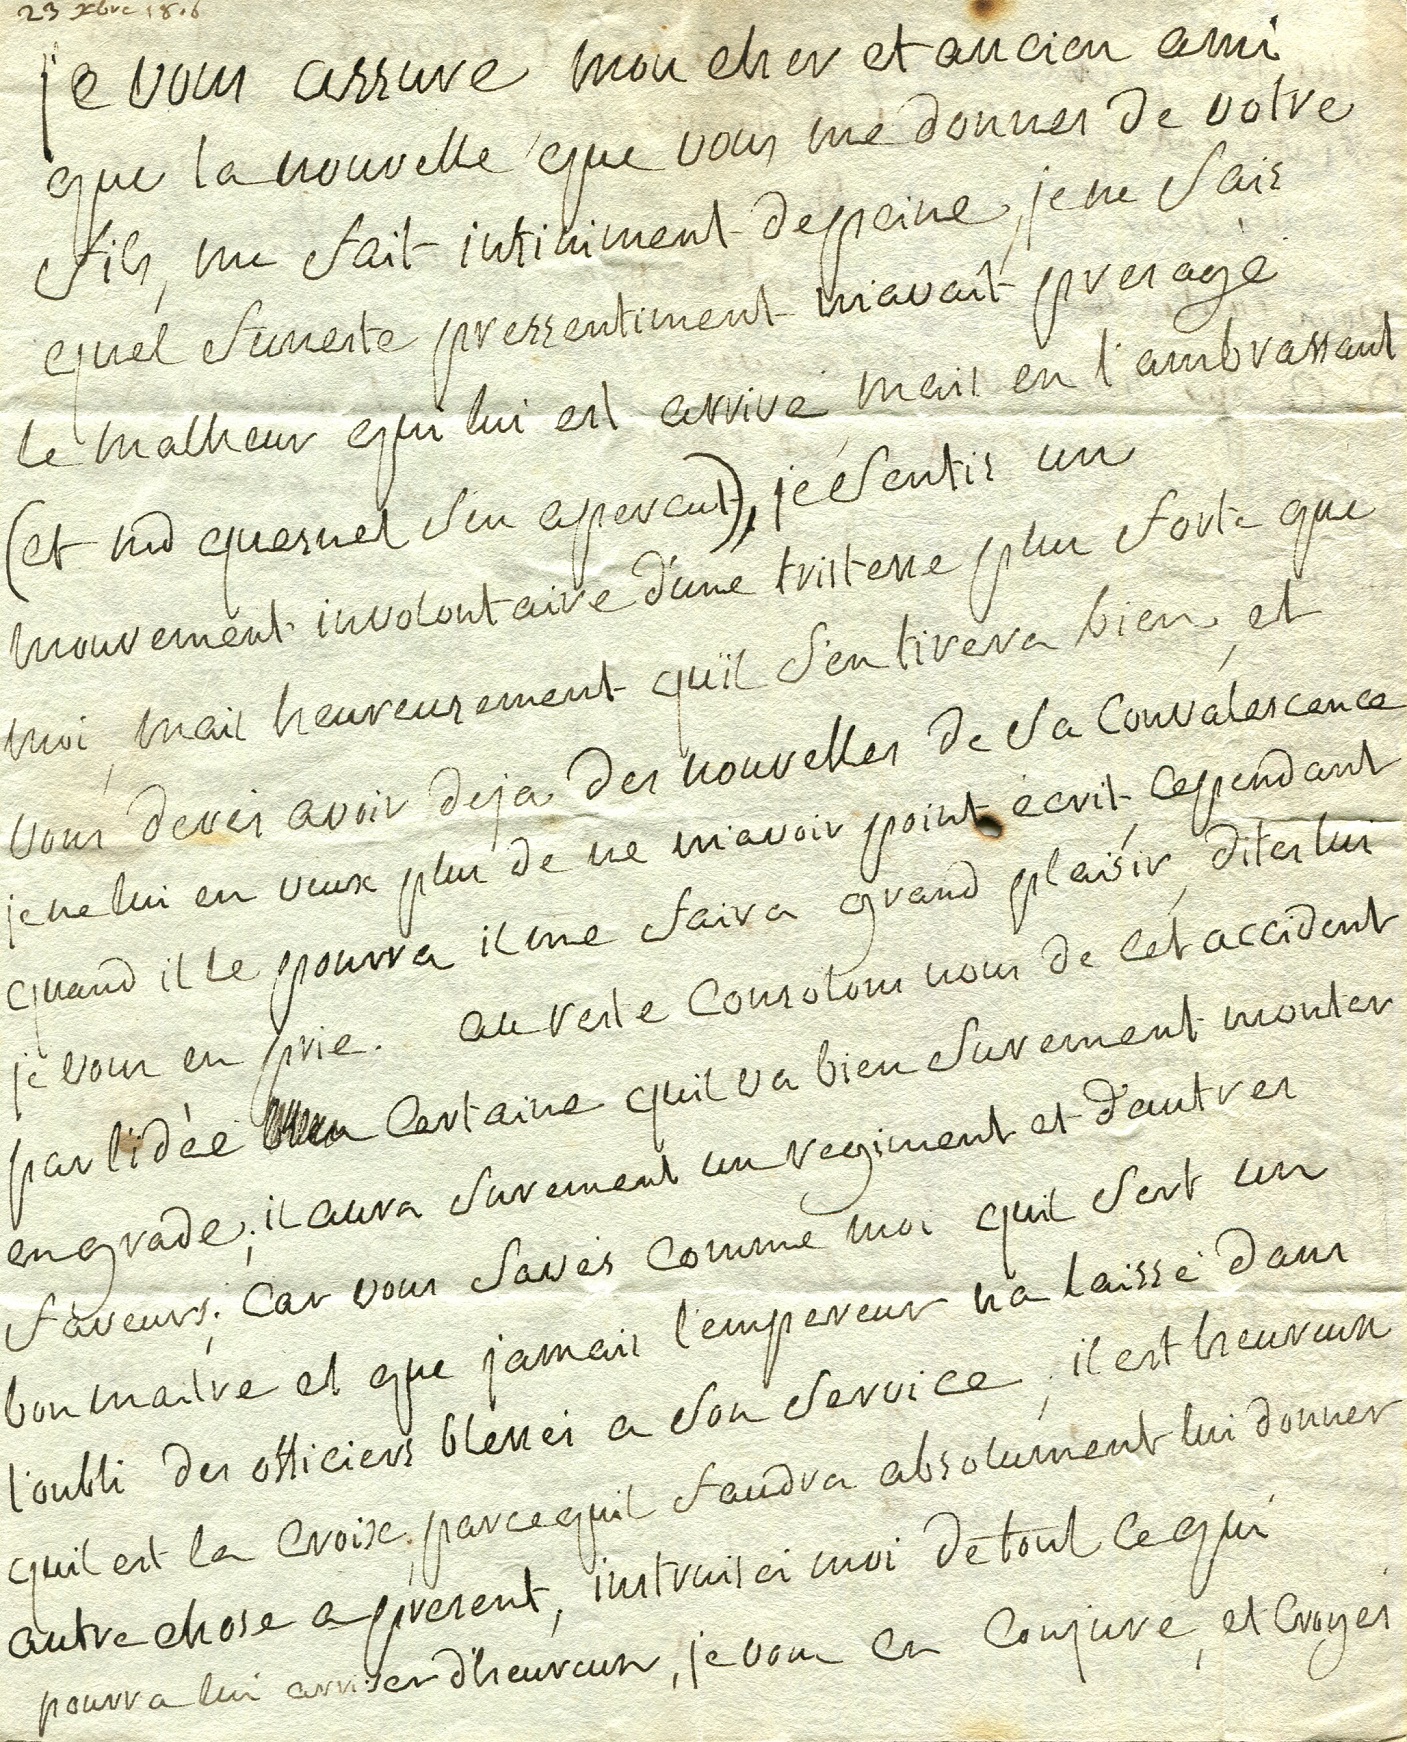 23 xbre 1806
je vous assure mon cher et ancien ami
que la nouvelle que vous me donnes de votre
fils, me fait infiniment de peine, je ne sais
quel funeste pressentiment m'avait presagé
le malheur qui lui est arrivé, mais en l'ambrassant
(et md quesnel s'en apercut), je sentis un
mouvement involontaire d'une tristesse plus forte que
moi, mais heureusement quïl s'en tirera bien, et
vous devés avoir deja des nouvelles de sa convalescence
je ne lui en veux plus de ne m'avoir point écrit, cependant
quand il le pourra il me faira grand plaisir, dites lui
je vous en prie. au reste consolons nous de cet accident
par l'idée certaine quil va bien surement monter
en grade; il aura surement un regiment et d'autres
faveurs; car vous savés comme moi quil sert un
bon maitre et que jamais l'empereur n'a laissé dans
l'oubli des officiers blessés a son service; il est heureux
quil est la croix, parcequil faudra absolument lui donner
autre chose a présent, instruisés moi de tout ce qui
pourra lui arriver d'heureux, je vous en conjure, et croyés